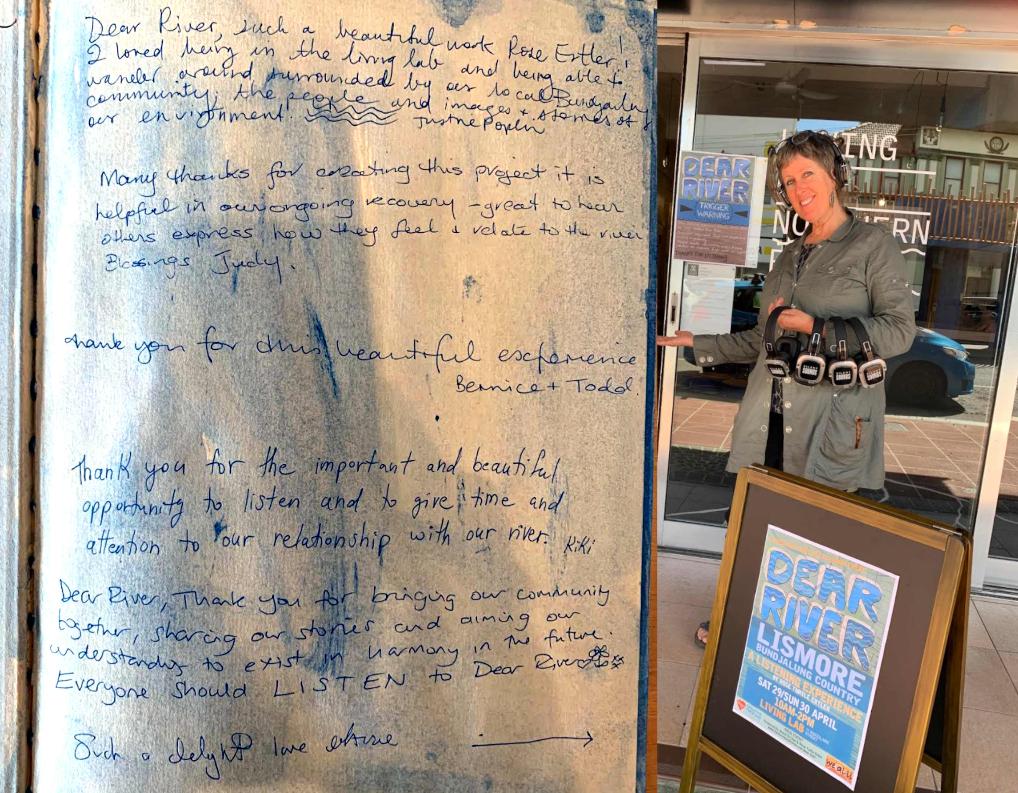 Dear River, such a beautiful work Rose Ertler!
I loved being in the living lab and being able to
wander around surrounded by our local Bundjalung
community; the people and images & stories of
our environment.
Many thanks for creating this project it is
helpful in our ongoing recovery - great to hear
others express how they feel & relate to the river
Blessings Judy.
thank you for this beautiful experience
Bernice + Todd.
Thank you for the important and beautiful
opportunity to listen and to give time and
attention to our relationship with our river. KiKi
Dear River, Thank you for bringing our community
together, sharing our stories and aiming our
understanding to exist in harmony in the future.
Everyone should LISTEN to Dear River
Such a delight love
LIVING
NORTHERN
DEAR
RIVER
TRIGGER
WARNING
DEAR
RIVER
LISMORE
BUNDJALUNG COUNTRY
A LISTENING EXPERIENCE
BY ROSE TURTLE ERTLER
SAT 29/SUN 30 APRIL
10AM-2PM
LIVING LAB